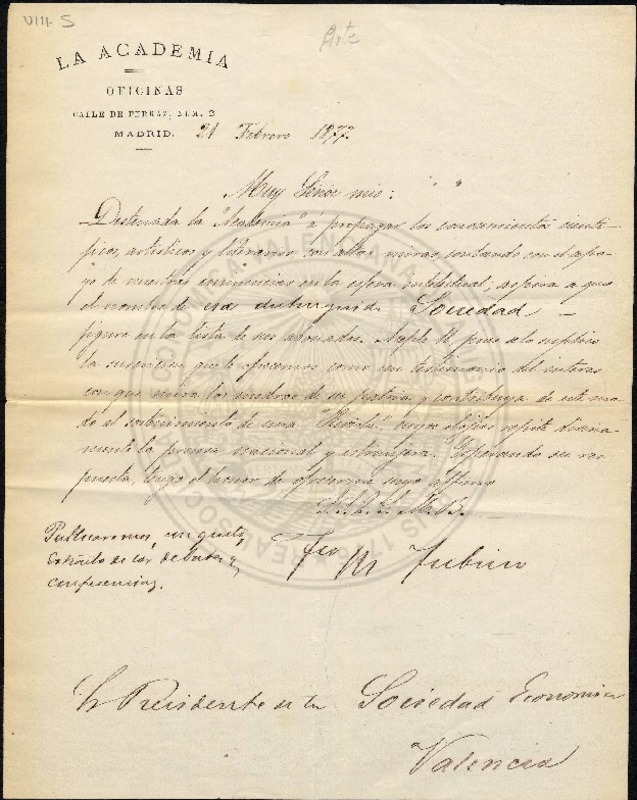 VIII-5
Arte
LA ACADEMIA
OFICINAS
CALLE DE FERRAZ, NUM. 2
MADRID. 21 Febrero 1877.
Muy Señor mio:
Destinada la "Academia" á propagar los conocimientos cienti-
ficos, artisticos y literarios con altas miras, contando con el apo-
yo de nuestras eminencias en la esfera intelectual, aspira a que
el nombre de esa distinguida Sociedad
figure en la lista de sus abonados. Acepte V. pues se lo suplico
la suscricion que le ofrecemos como un testimonio del interes
con que mira los medros de su patria, y contribuya de este mo-
do al sostenimiento de una "Revista", cuyos elogios repite diaria-
mente la prensa nacional y estranjera. Esperando su res-
puesta, tengo el honor de ofrecerme suyo affmo
Publicaremos con gusto
Estracto de los debates y
conferencias.
Fco M Tubino
Sr Presidente de la Sociedad Económica
Valencia